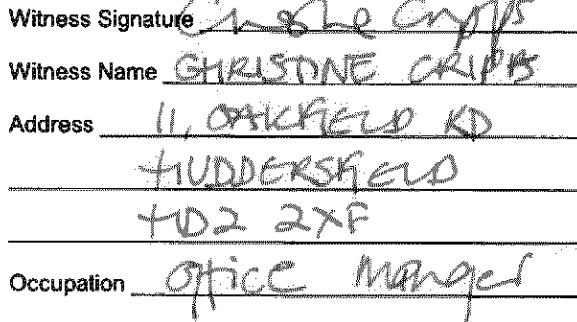 Witness Signature Christine Cripps
Witness Name CHRISTINE CRIPPS
Address 11, OAKFIELD RD
HUDDERSFIELD
HD2 2XF
Occupation Office Manager